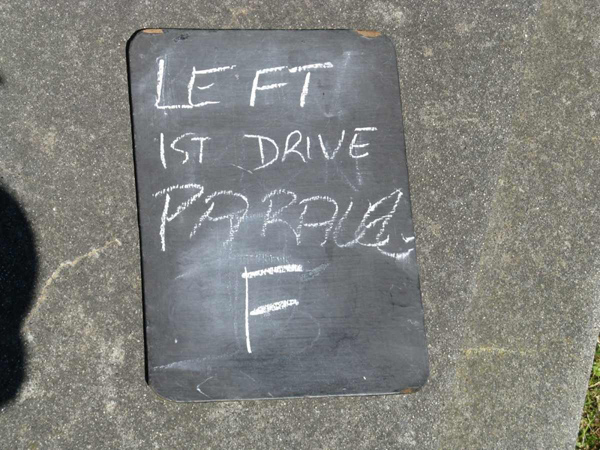 LEFT
1ST DRIVE
PARALLEL
F